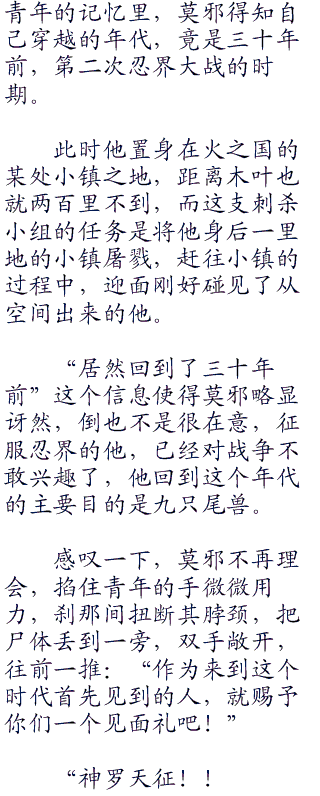 青年的记忆里，莫邪得知自
己穿越的年代，竟是三十年
前，第二次忍界大战的时
期。
此时他置身在火之国的
某处小镇之地，距离木叶也
就两百里不到，而这支刺杀
小组的任务是将他身后一里
地的小镇屠戮，赶往小镇的
过程中，迎面刚好碰见了从
空间出来的他。
“居然回到了三十年
前”这个信息使得莫邪略显
讶然，倒也不是很在意，征
服忍界的他，已经对战争不
敢兴趣了，他回到这个年代
的主要目的是九只尾兽。
感叹一下，莫邪不再理
会，掐住青年的手微微用
力，刹那间扭断其脖颈，把
尸体丢到一旁，双手敞开，
往前一推：“作为来到这个
时代首先见到的人，就赐予
你们一个见面礼吧！”
“神罗天征！！